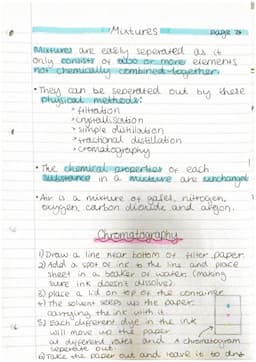 Mixtures
page 28
Mixtures are easily seperated as it
only consists of two or more elements
not chemically combined together.
• They can be seperated out by these
physical methods:
* filtration
* crystallisation
* simple distillation
* fractional distillation
* cromatography
• The chemical properties of each
substance in a mixture are unchanged
• Air is a mixture of gases, nitrogen,
oxygen, carbon dioxide and argon.
Chromatography
1) Draw a line near bottom of filter paper.
2) Add a spot of ink to the line and place
sheet in a beaker of water. (making
sure ink doesn't dissolve)
3) place a lid on top of the container
4) The solvent seeps up the paper,
carrying the ink with it.
5) Each different dye in the ink
will move up the paper
at different rates and
separate out.
A chromatogram
6) Take the paper out and leave it to dry